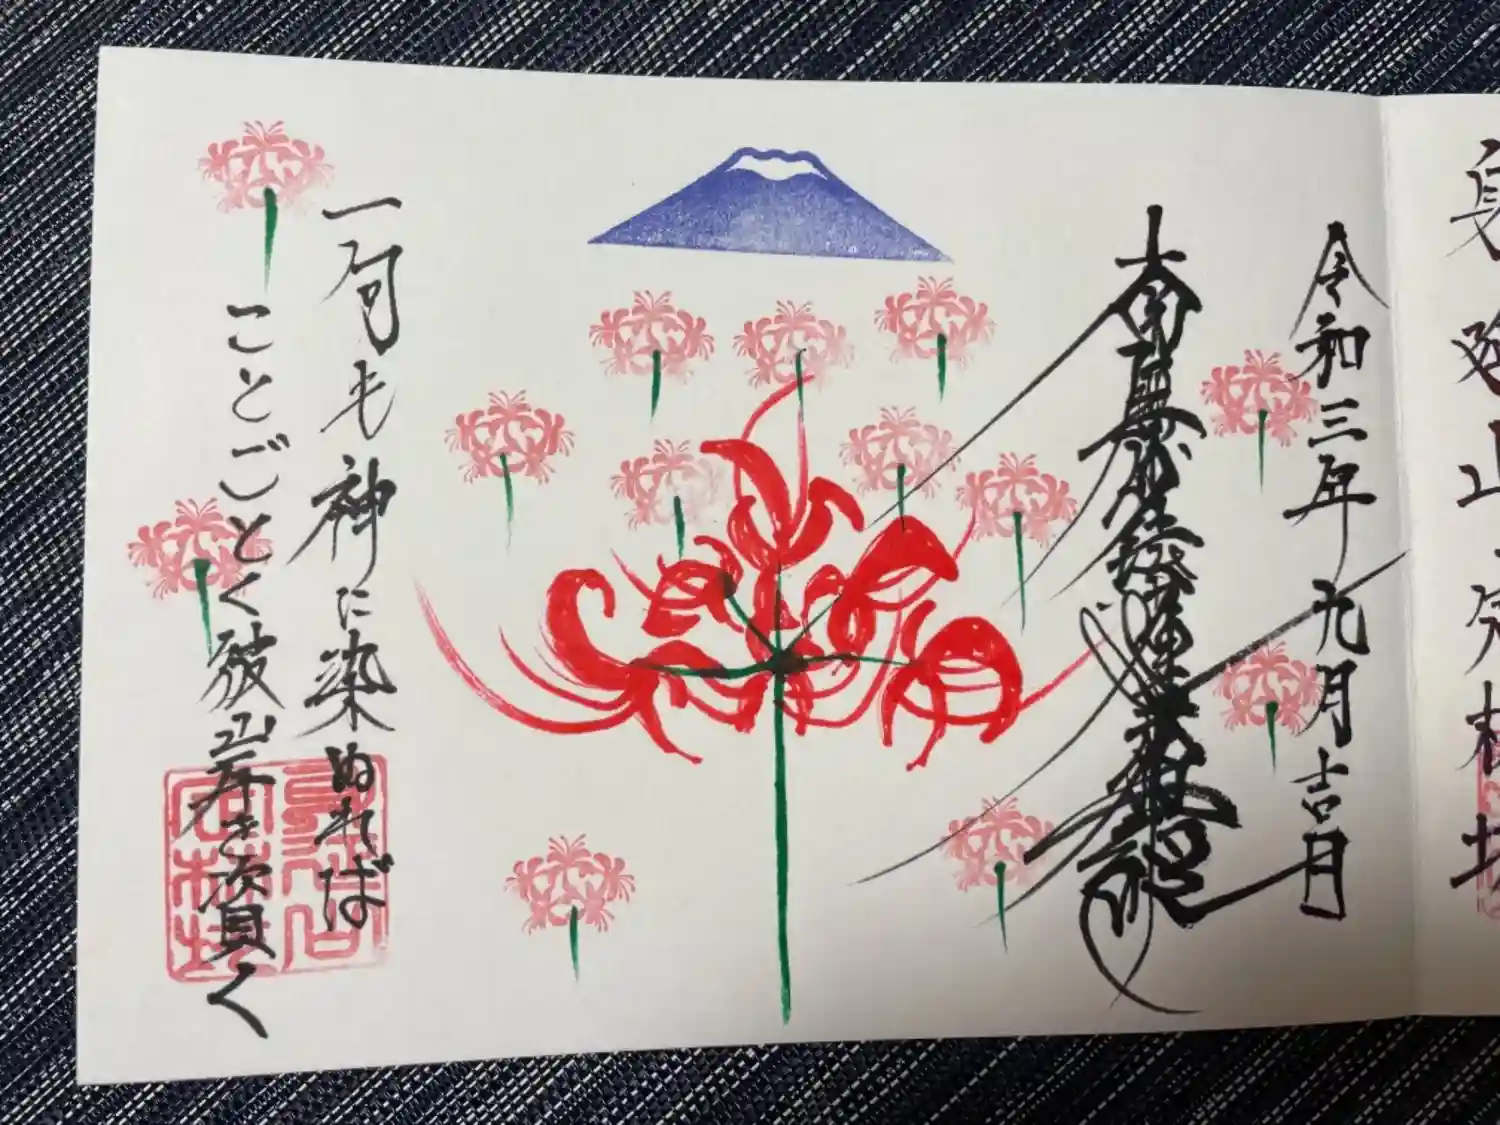 身延山覚林坊
令和三年九月吉日
南無妙法蓮華経
一句も神に染ぬれば
ことごとく彼岸を資く